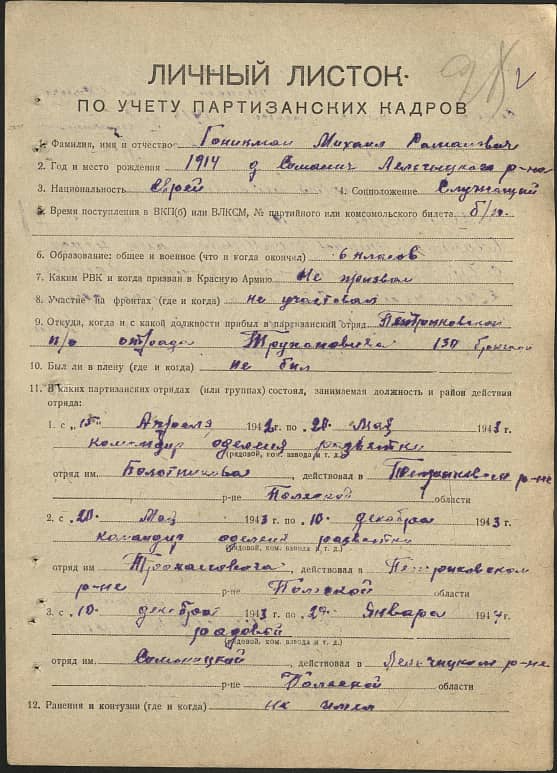 ЛИЧНЫЙ ЛИСТОК
ПО УЧЕТУ ПАРТИЗАНСКИХ КАДРОВ
1. Фамилия, имя и отчество Гоникман Михаил Романович
2. Год и место рождения 1914 д Симонич Лельчицкого р-на
3. Национальность Еврей 4. Соцположение Служащий
5. Время поступления в ВКП(б) или ВЛКСМ, № партийного или комсомольского билета б/п.
6. Образование: общее и военное (что и когда окончил) 6 класов
7. Каким РВК и когда призван в Красную Армию Не призван
8. Участие на фронтах (где и когда) не участвовал
9. Откуда, когда и с какой должности прибыл в партизанский отряд
п/о отряда 130 бригады
10. Был ли в плену (где и когда) не был
11. В каких партизанских отрядах (или группах) состоял, занимаемая должность и район действия
отряда:
1. с „15" Апреля 1942 г. по 20 Мая 1943 г.
командир оделения разветки
(рядовой, ком. взвода и т. д.)
отряд им. Болотникова, действовал в р-не
р-не Полеской области
2. с 20. Мая 1943 г. по 10. декабря 1943 г.
командир оделения разветки
(рядовой, ком. взвода и т. д.)
отряд им, действовал в Петриковском
р-не р-не Полеской области
3. с 10. декабря 1943 г. по 27. Января 1944 г.
рядовой
(рядовой, ком. взвода и т. д.)
отряд им., действовал в Лельчицком р-не
р-не Полеской области
12. Ранения и контузии (где и когда) не имел